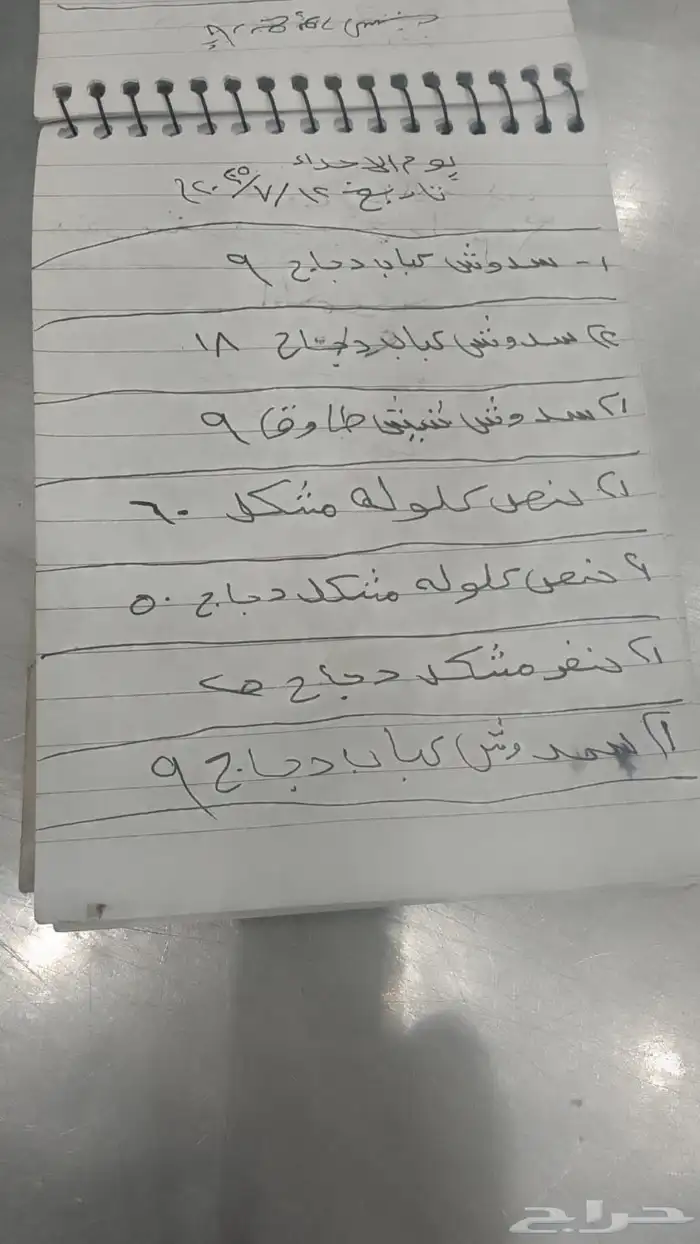 يوم الاحداء
تاريخ ٢٠٢٥/٧/١٢
١- سدوش كباب دجاج ٩
٢) سدوش كباب دجاج ١٨
١) سدوش شيش طاوق ٩
١) نص كلوله مشكل ٦٠
١ نص كلوله مشكل دجاج ٥٠
١) نفر مشكل دجاج
١) سدوش كباب دجاج ٩
حراج